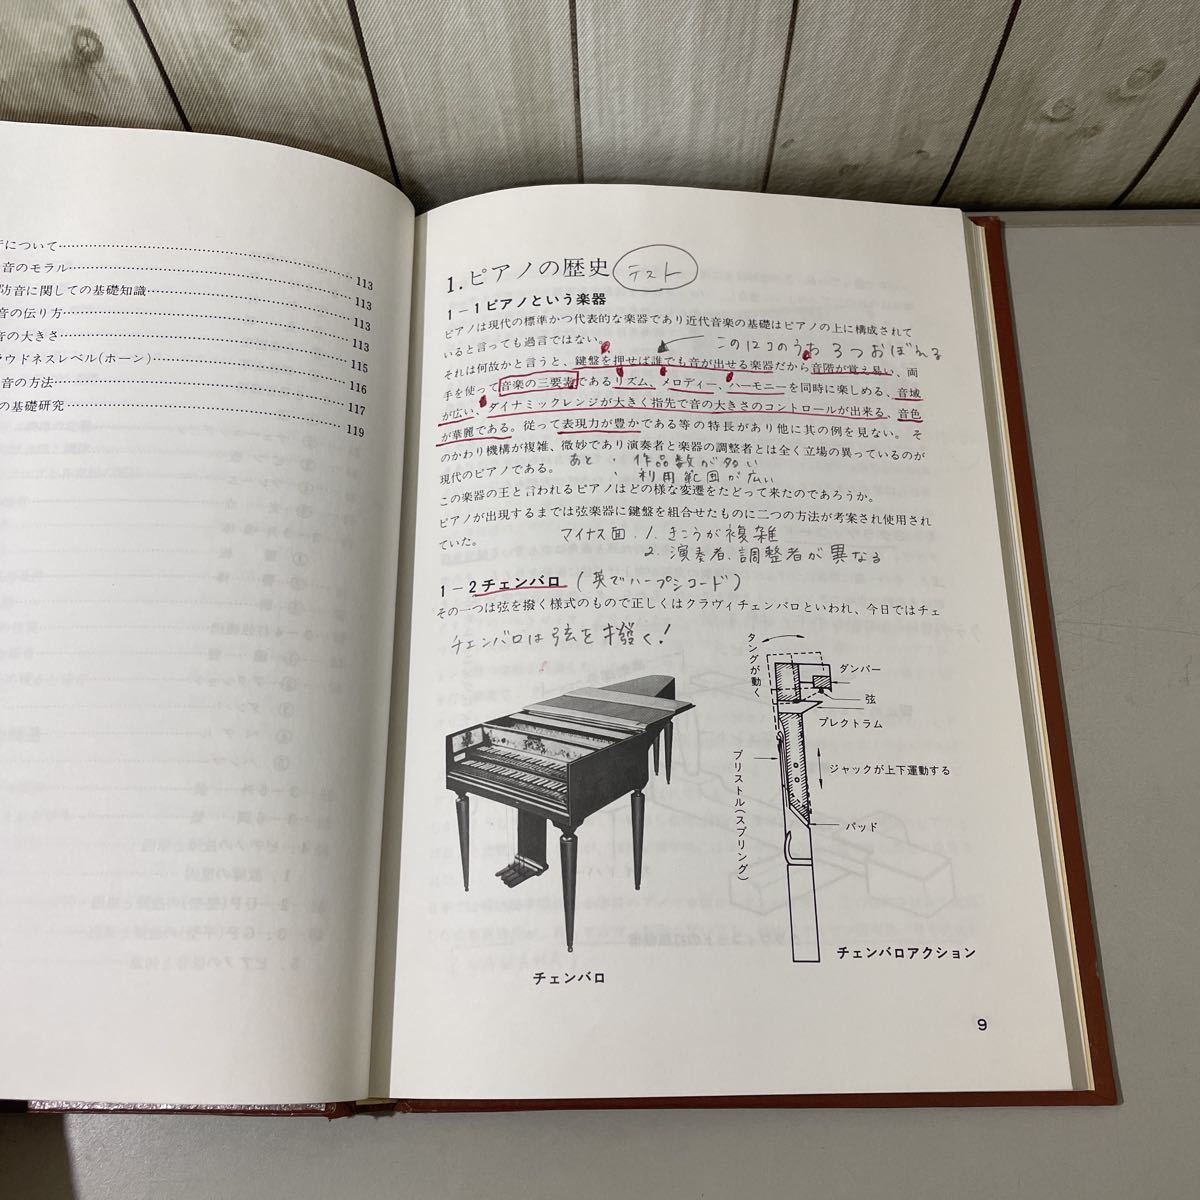 行について……113
音のモラル……113
防音に関しての基礎知識……113
音の伝り方……113
音の大きさ……115
ラウドネスレベル(ホーン)……116
音の方法……117
の基礎研究……119
1.ピアノの歴史 テスト
1−1ピアノという楽器
ピアノは現代の標準かつ代表的な楽器であり近代音楽の基礎はピアノの上に構成されて
いると言っても過言ではない。
この12コのうち3つおぼえる
それは何故かと言うと、鍵盤を押せば誰でも音が出せる楽器だから音階が覚え易い、両
手を使って音楽の三要素であるリズム、メロディー、ハーモニーを同時に楽しめる、音域
が広い、ダイナミックレンジが大きく指先で音の大きさのコントロールが出来る、音色
が華麗である。従って表現力が豊かである等の特長があり他に其の例を見ない。そ
のかわり機構が複雑、微妙であり演奏者と楽器の調整者とは全く立場の異っているのが
現代のピアノである。
あと、作品数が多い
、利用範囲が広い
この楽器の王と言われるピアノはどの様な変遷をたどって来たのであろうか。
ピアノが出現するまでは弦楽器に鍵盤を組合せたものに二つの方法が考案され使用され
ていた。
マイナス面.1.きこうが複雑
2.演奏者、調整者が異なる
1−2チェンバロ(英でハープシコード)
その一つは弦を撥く様式のもので正しくはクラヴィチェンバロといわれ、今日ではチェ
チェンバロは弦を撥く!
タングが動く
ダンパー
弦
プレクトラム
ブリストル(スプリング)
ジャックが上下運動する
パッド
チェンバロアクション
チェンバロ
9